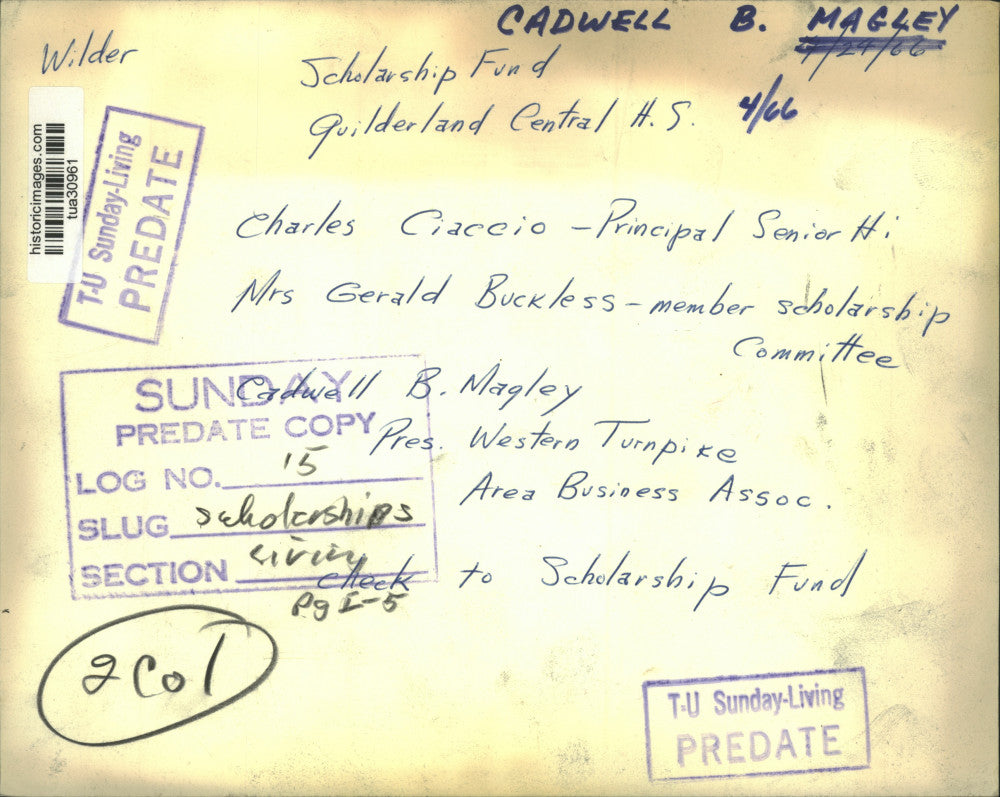 CADWELL B. MAGLEY
Wilder
Scholarship Fund
4/24/66
Guilderland Central H.S. 4/66
historicimages.com
tua30961
T-U Sunday-Living
PREDATE
Charles Ciaccio - Principal Senior Hi
Mrs Gerald Buckless - member scholarship
Committee
Cadwell B. Magley
Pres. Western Turnpike
Area Business Assoc.
check to Scholarship Fund
SUNDAY
PREDATE COPY
LOG NO. 15
SLUG scholarships
SECTION Living
Pg I-5
2 Col
T-U Sunday-Living
PREDATE